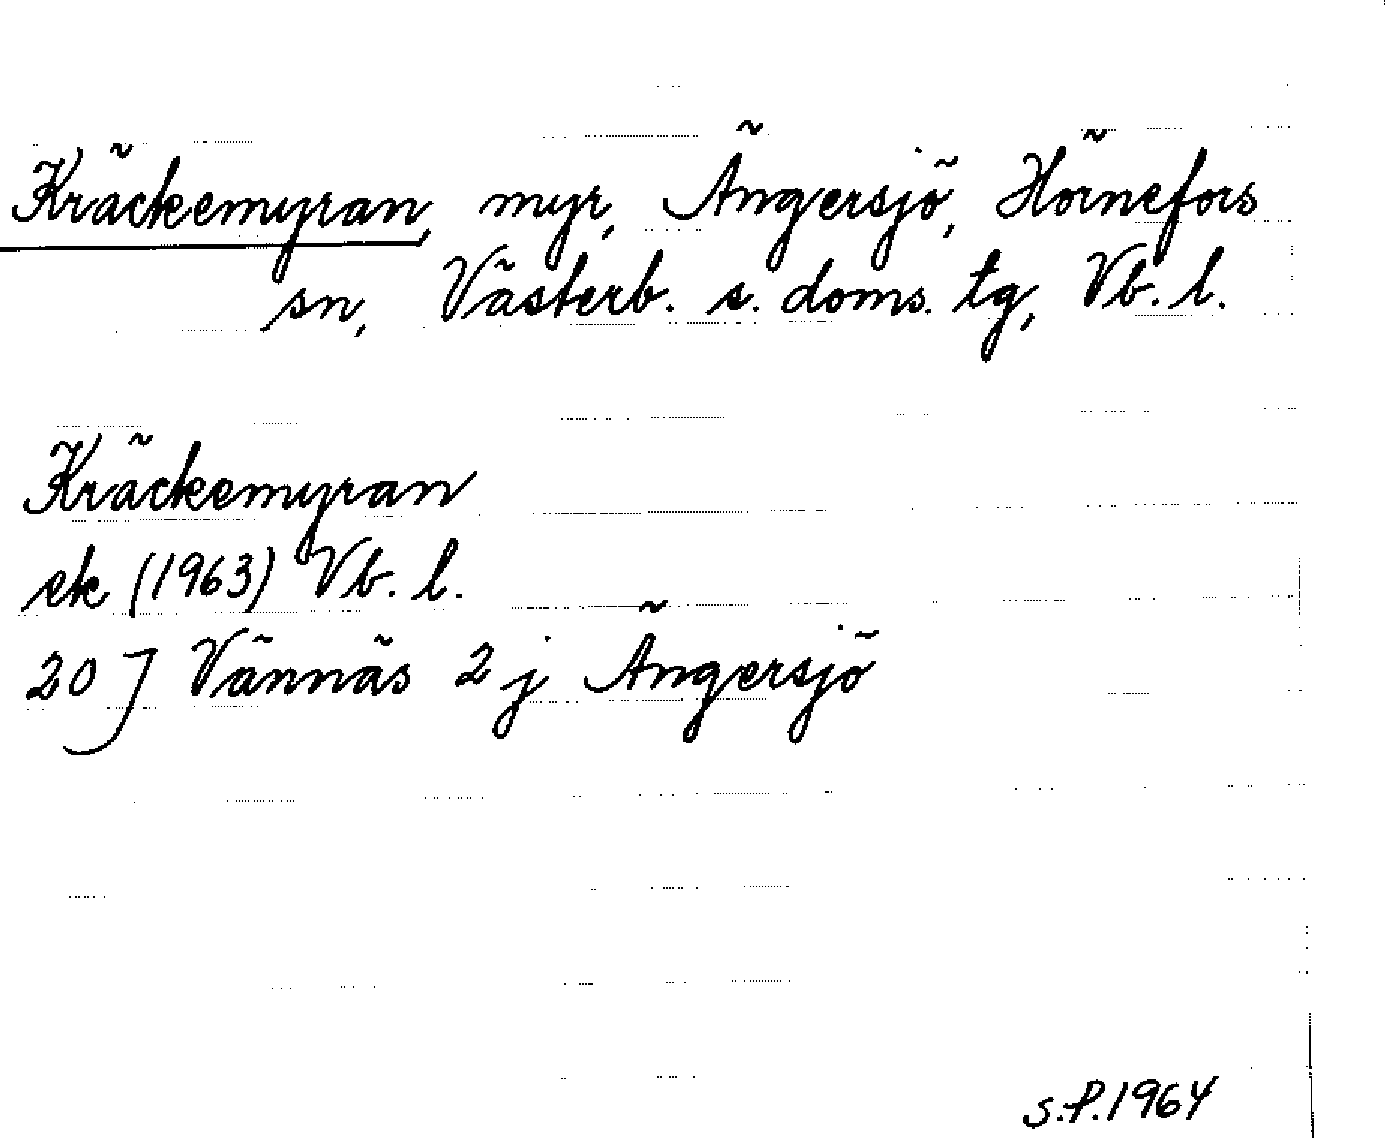 Kräckemyran, myr, Ängersjö, Hörnefors
sn, Västerb. s. doms. tg, Vb. l.
Kräckemyran
ek (1963) Vb. l.
20 J Vännäs 2 j Ängersjö
S.P. 1964